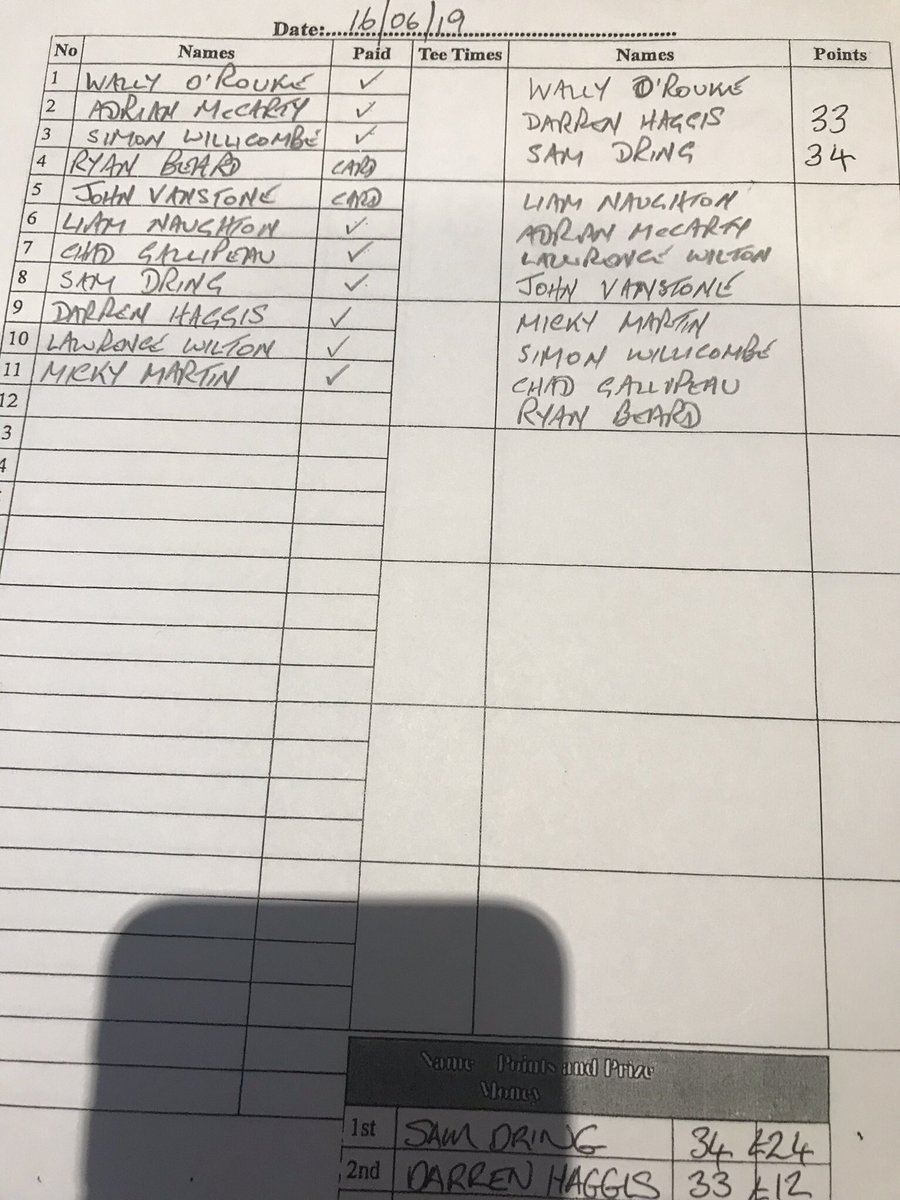 Date: 16/06/19
No Names Paid Tee Times Names Points
1 WALLY O'ROUKE ✓ WALLY O'ROUKE
2 ADRIAN McCARTY ✓ DARREN HAGGIS 33
3 SIMON WILLICOMBE ✓ SAM DRING 34
4 RYAN BEARD CARD
5 JOHN VANSTONE CARD LIAM NAUGHTON
6 LIAM NAUGHTON ✓ ADRIAN McCARTY
7 CHAD GALLIPEAU ✓ LAWRONCE WILTON
8 SAM DRING ✓ JOHN VANSTONE
9 DARREN HAGGIS ✓ MICKY MARTIN
10 LAWRONCE WILTON ✓ SIMON WILLICOMBE
11 MICKY MARTIN ✓ CHAD GALLIPEAU
12 RYAN BEARD
3
4
Name Points and Prize
Money
1st SAM DRING 34 £24
2nd DARREN HAGGIS 33 £12